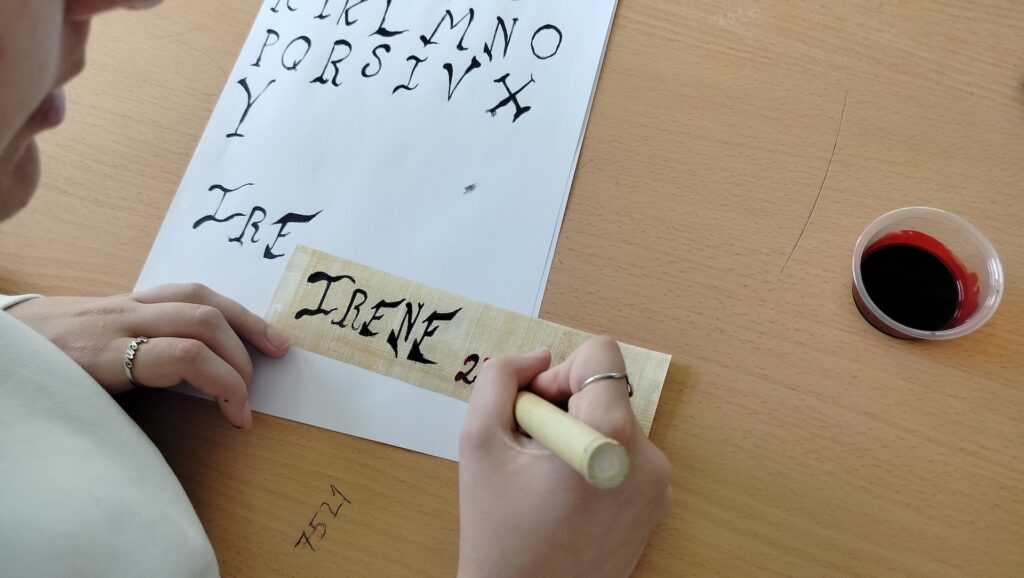 K L M N O
P Q R S I V X
Y
IRE
IRENE 2
7521